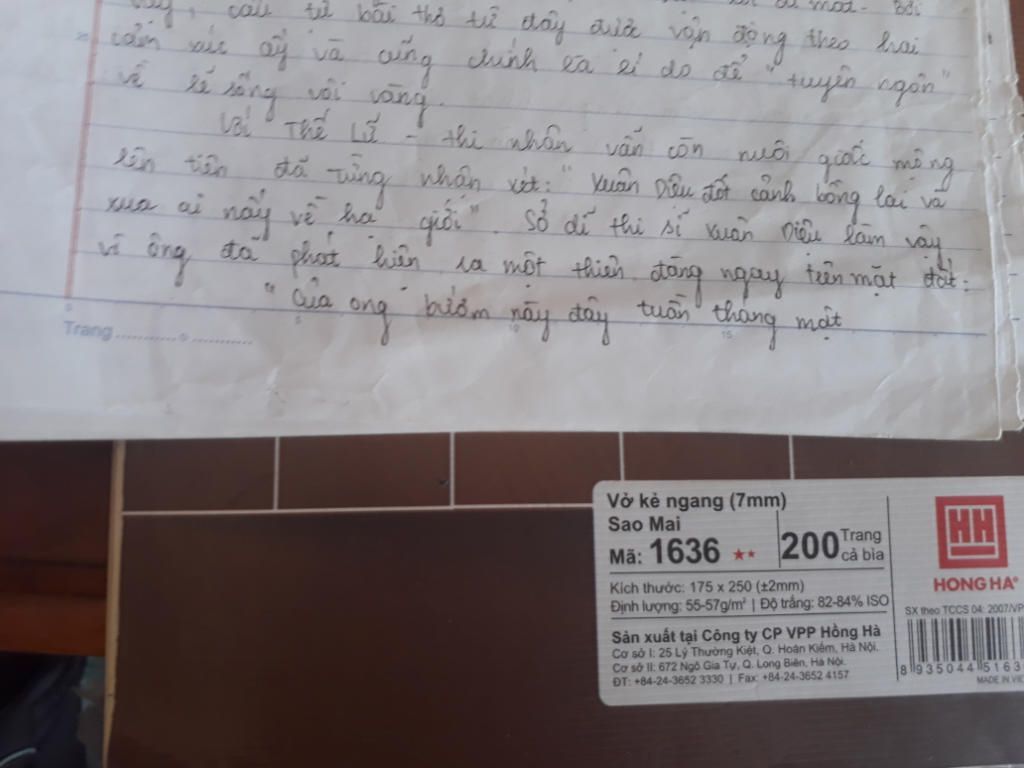 cấu tứ bài thơ từ đây được vận động theo hai
cảm xúc ấy và cũng chính là lí do để "tuyên ngôn"
về lẽ sống vội vàng.
Với Thế Lữ - thi nhân vẫn còn nuôi giấc mộng
lên tiên đã từng nhận xét: "Xuân Diệu đốt cảnh bồng lai và
xua ai nấy về hạ giới". Sở dĩ thi sĩ Xuân Diệu làm vậy
vì ông đã phát hiện ra một thiên đàng ngay trên mặt đất:
"Của ong bướm này đây tuần tháng mật
Trang
5
10
15
20
Vở kẻ ngang (7mm)
Sao Mai
Mã: 1636 ★★
200 Trang cả bìa
Kích thước: 175 x 250 (±2mm)
Định lượng: 55-57g/m² | Độ trắng: 82-84% ISO
Sản xuất tại Công ty CP VPP Hồng Hà
Cơ sở I: 25 Lý Thường Kiệt, Q. Hoàn Kiếm, Hà Nội.
Cơ sở II: 672 Ngô Gia Tự, Q. Long Biên, Hà Nội.
ĐT: +84-24-3652 3330 | Fax: +84-24-3652 4157
HH
HONG HA®
SX theo TCCS 04: 2007/VP
8 935044 5163
MADE IN VIE